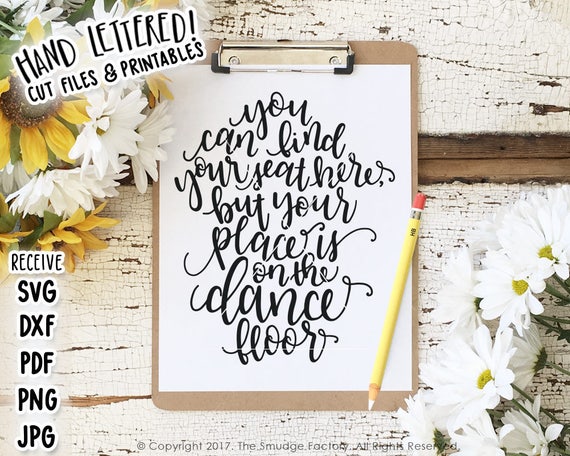 HAND LETTERED!
CUT FILES & PRINTABLES
you
can find
your seat here,
but your
place is
on the
dance
floor
HB
RECEIVE
SVG
DXF
PDF
PNG
JPG
© Copyright 2017. The Smudge Factory. All Rights Reserved.